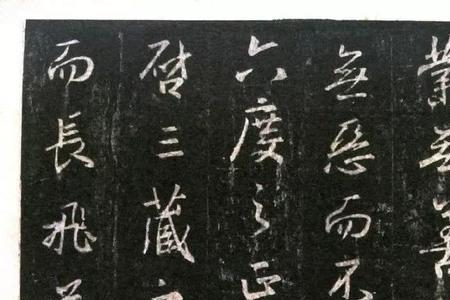 業無善
無惡而不
六度之正
啓三藏
而長飛